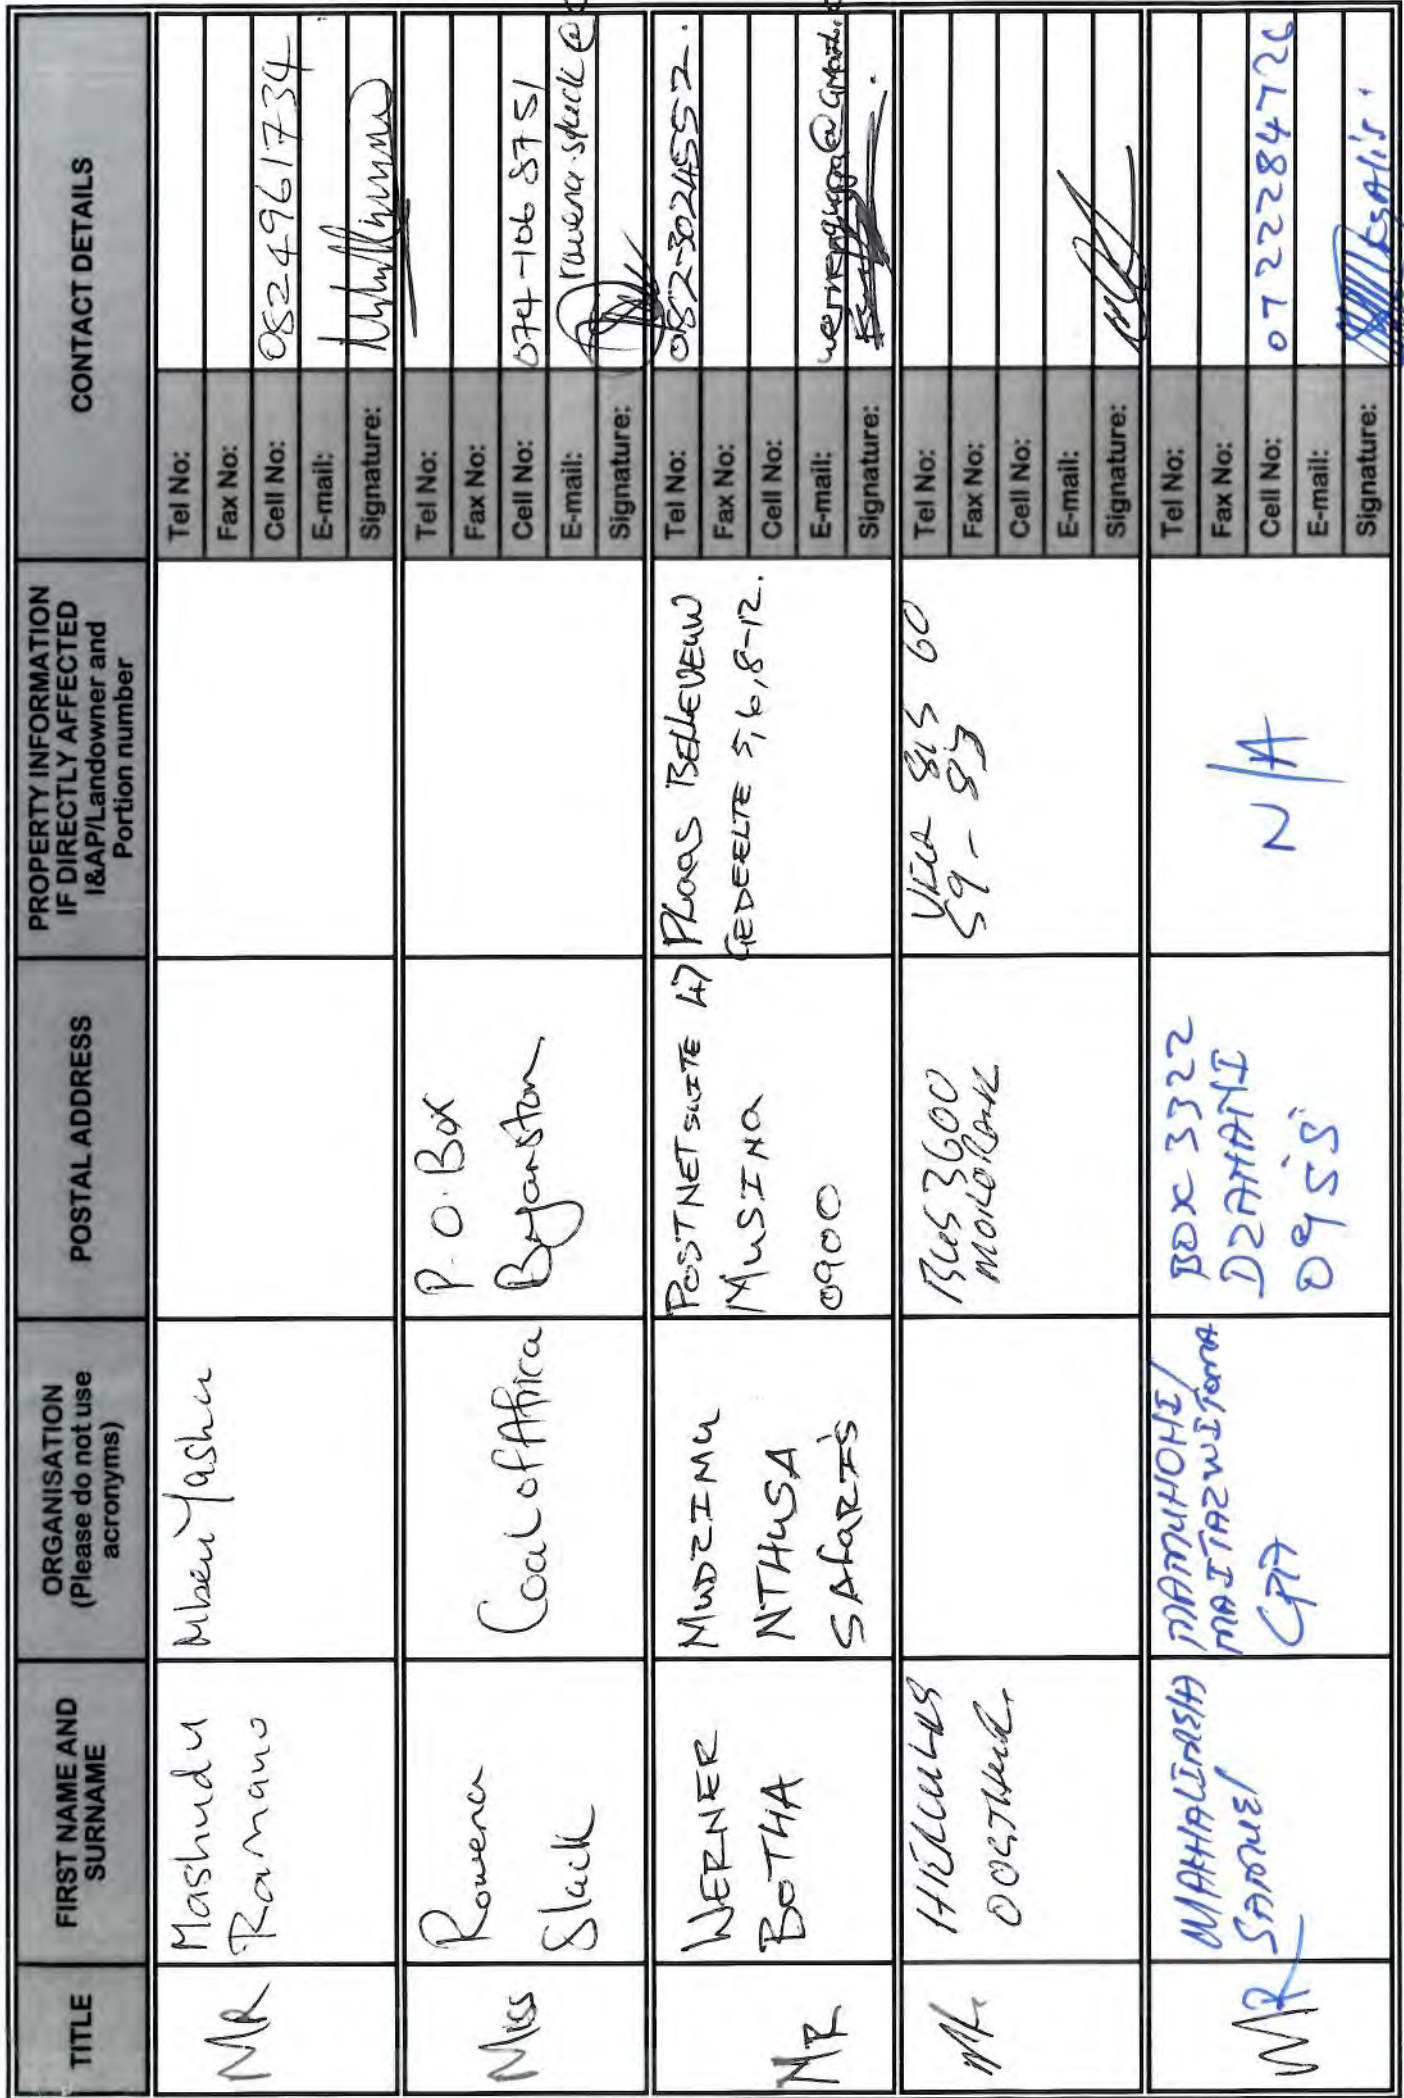 TITLE
FIRST NAME AND
SURNAME
ORGANISATION
(Please do not use
acronyms)
POSTAL ADDRESS
PROPERTY INFORMATION
IF DIRECTLY AFFECTED
I&AP/Landowner and
Portion number
CONTACT DETAILS
MR
Mashudu
Ramano
Mbeu Yashu
Tel No:
Fax No:
Cell No: 0824961734
E-mail:
Signature:
Miss
Rowena
Slack
Coal of Africa
P.O. Box
Bryanston
Tel No:
Fax No:
Cell No: 074-106 8751
E-mail: rowena.slack@
Signature:
MR
WERNER
BOTHA
MUDZIMU
NTHUSA
SAFARIS
POSTNET SUITE 47
MUSINA
0900
PLAAS BELLEVEUW
GEDEELTE 5,6,8-12.
Tel No: 082-3024552.
Fax No:
Cell No:
E-mail:
Signature:
Mr.
OOSTHUIZ
BUS 3600
815 60
59 -
Tel No:
Fax No:
Cell No:
E-mail:
Signature:
MR
SAMUEL
MAMUHOHI/
CPA
BOX 3322
DZANANI
0955
N/A
Tel No:
Fax No:
Cell No: 0722284726
E-mail:
Signature: